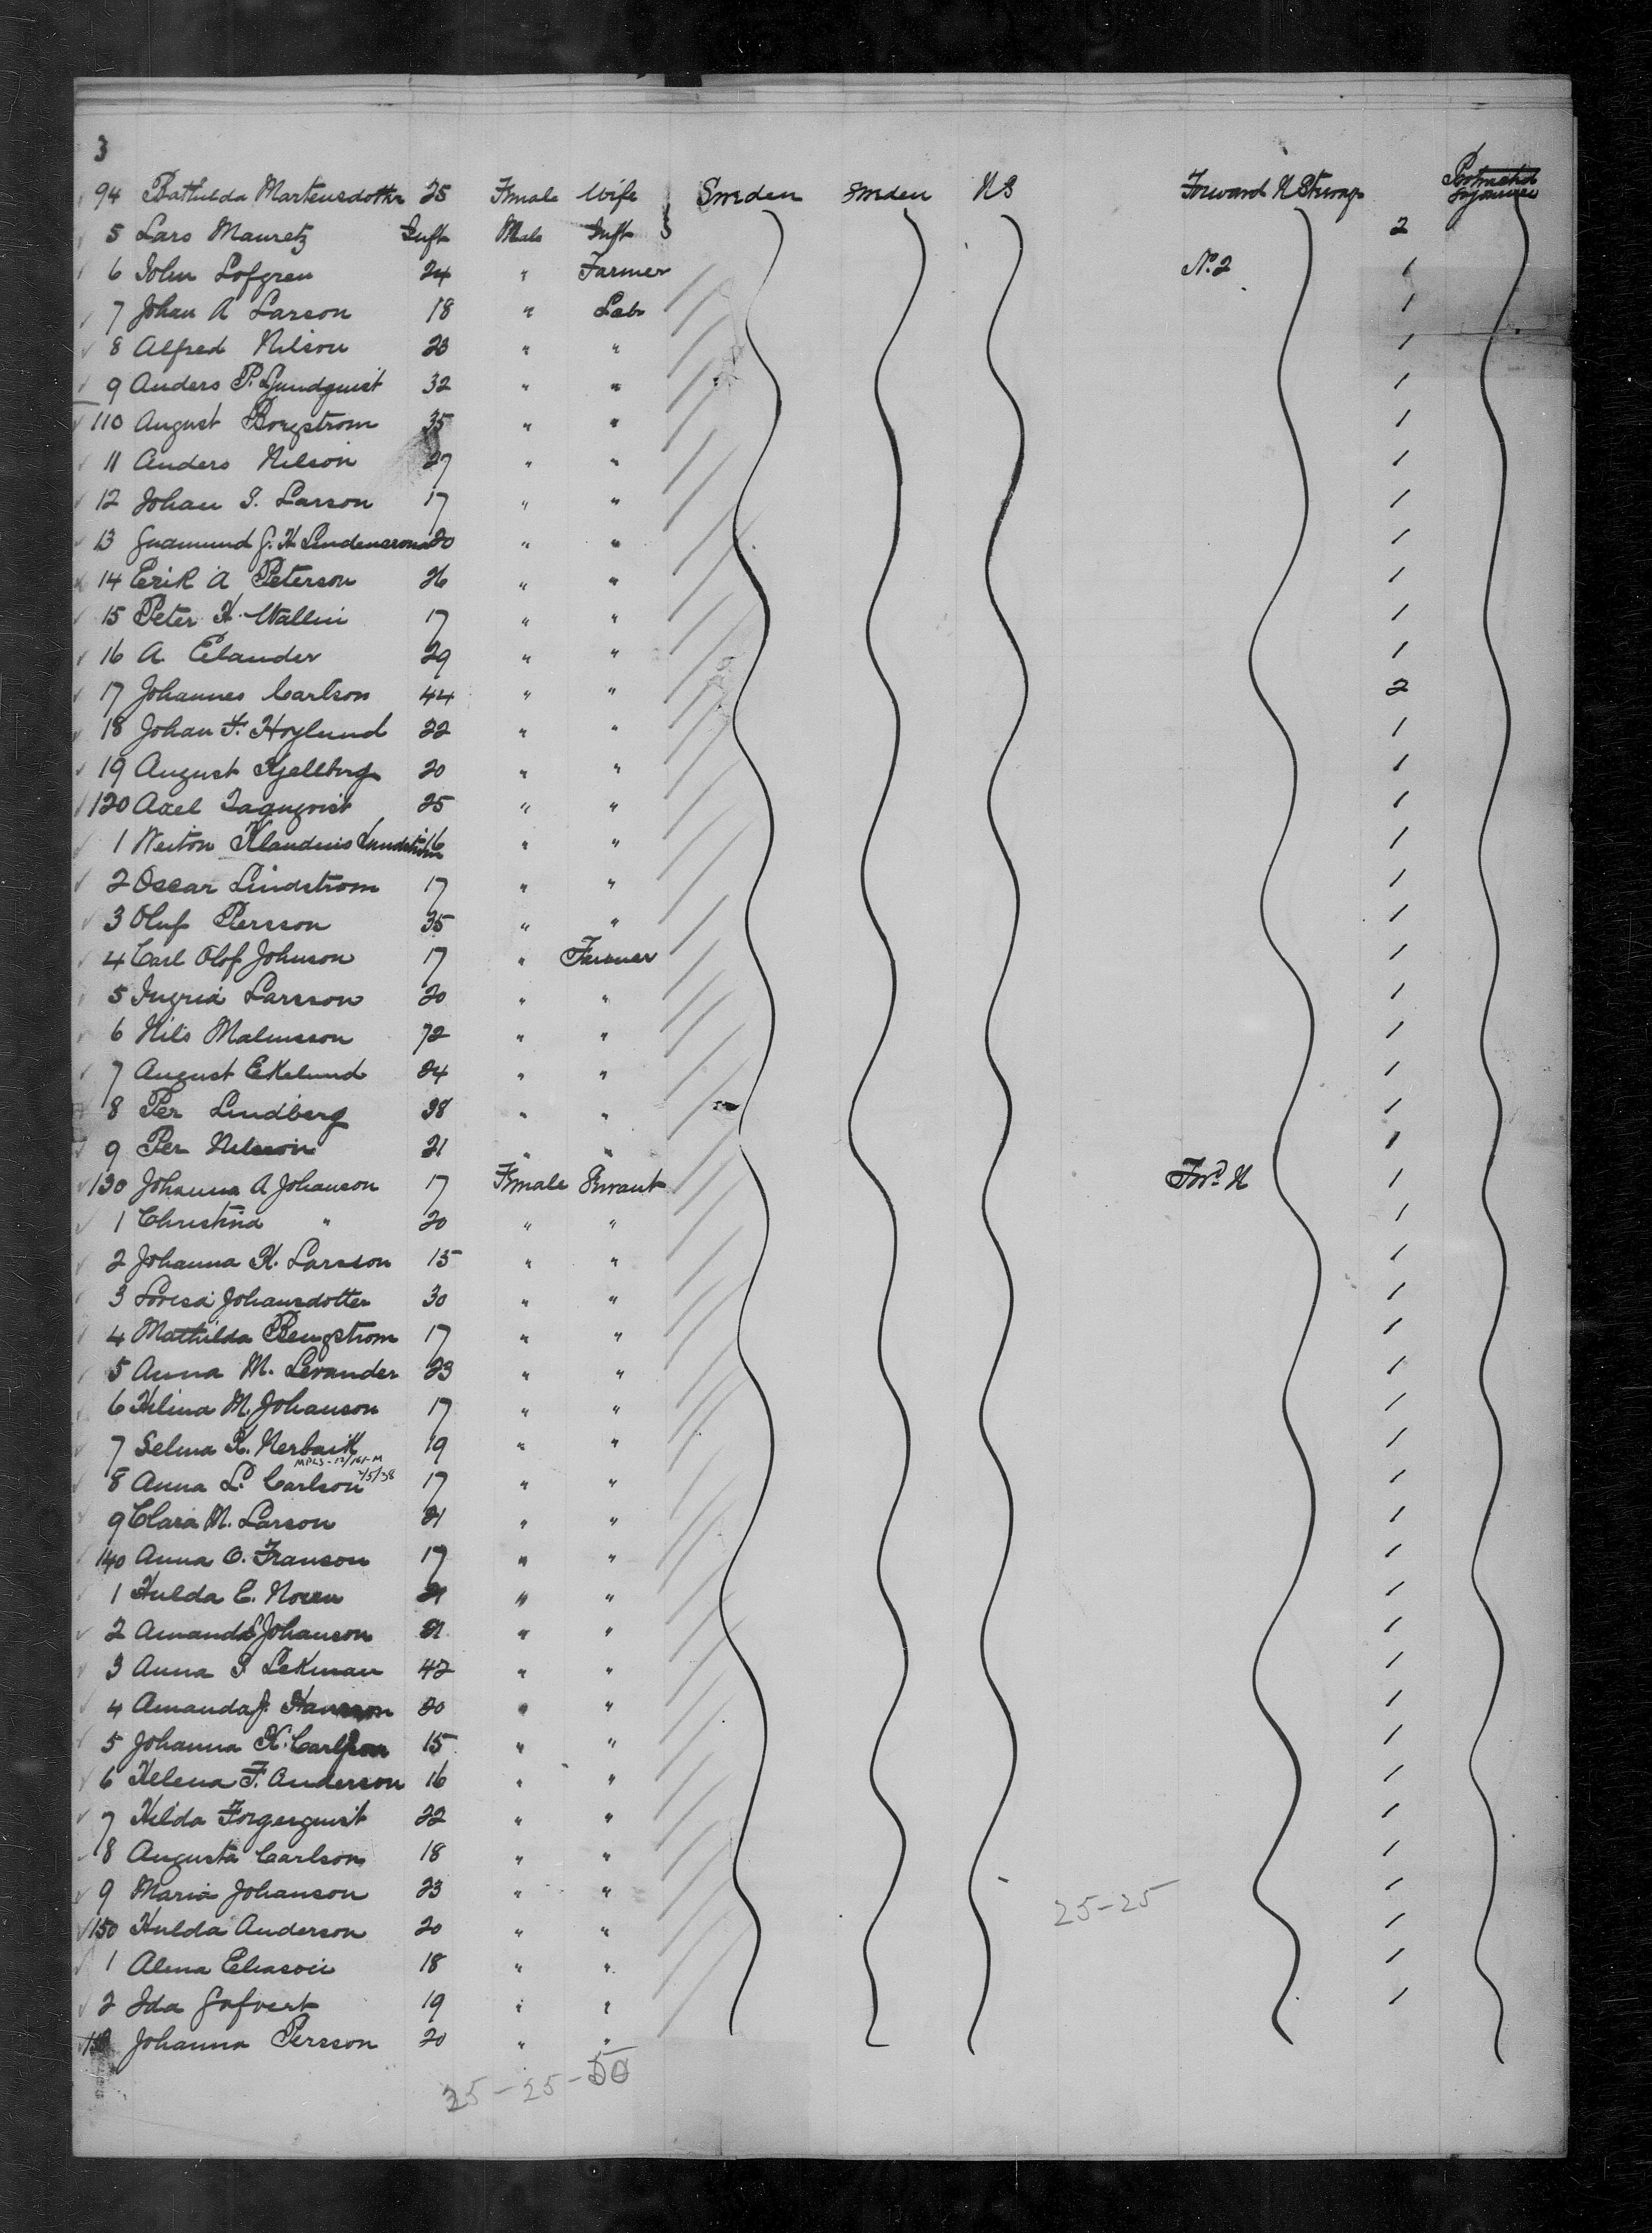 3
94 Bathilda Martensdotter 25 Female Wife Sweden Sweden US Forward N Steerage Protracted Sojourn
5 Lars Mauretz Inft Male Inft 2
6 John Lofgren 24 " Farmer No. 2 1
7 Johan A Larson 18 " Lab 1
8 Alfred Nilson 23 " " 1
9 Anders P. Ljundquist 32 " " 1
110 August Borgstrom 35 " " 1
11 Anders Nilson 27 " " 1
12 Johan S. Larson 17 " " 1
13 G. H. 20 " " 1
14 Erik A Peterson 26 " " 1
15 Peter H. Wallin 17 " " 1
16 A. Elander 29 " " 1
17 Johannes Carlson 44 " " 2
18 Johan F. Hoglund 22 " " 1
19 August Kjellberg 20 " " 1
120 Axel 25 " " 1
1 Klaudius Lundstrom 16 " " 1
2 Oscar Lindstrom 17 " " 1
3 Oluf Persson 35 " " 1
4 Carl Olof Johnson 17 " Farmer 1
5 Ingrid Larsson 20 " " 1
6 Nils Malmsson 72 " " 1
7 August Ekelund 24 " " 1
8 Per Lindberg 38 " " 1
9 Per Nilsson 21 " " 1
130 Johanna A Johanson 17 Female Servant For'd N 1
1 Christina " 20 " " 1
2 Johanna K. Larsson 15 " " 1
3 Lovisa Johansdotter 30 " " 1
4 Mathilda Bengstrom 17 " " 1
5 Anna M. Levander 23 " " 1
6 Hilina M. Johanson 17 " " 1
7 Selma K. 19 " " 1
8 Anna L. Carlson 17 " " 1
9 Clara M. Larson 21 " " 1
140 Anna O. Franson 17 " " 1
1 Hulda C. Noren 21 " " 1
2 Amanda Johanson 21 " " 1
3 Anna S Lekman 42 " " 1
4 Amanda J. Hansson 20 " " 1
5 Johanna K. Carlson 15 " " 1
6 Helena F. Anderson 16 " " 1
7 Hilda Forgerquist 22 " " 1
8 Augusta Carlson 18 " " 1
9 Maria Johanson 23 " " 1
25-25
150 Hulda Anderson 20 " " 1
1 Alma Eliason 18 " " 1
2 Ida Gafvert 19 " " 1
Johanna Persson 20 " "
25-25-50